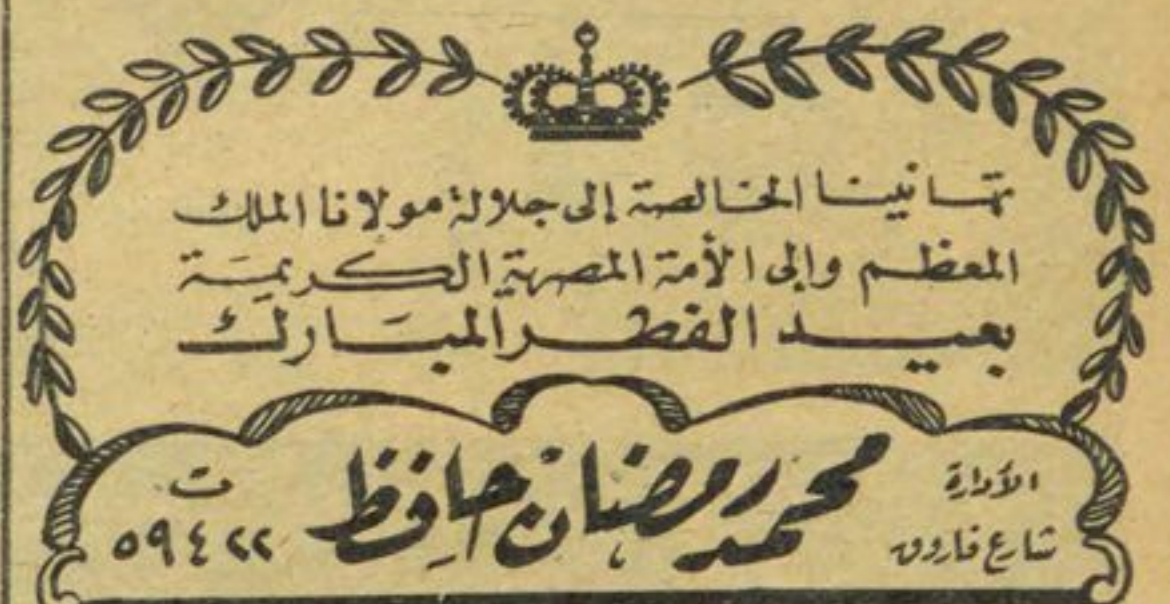 تهانينا الخالصة إلى جلالة مولانا الملك
المعظم وإلى الأمة المصرية الكريمة
بعيد الفطر المبارك
الأدارة
شارع فاروق
محمد رمضان حافظ
ت
٥٩٤٢٢